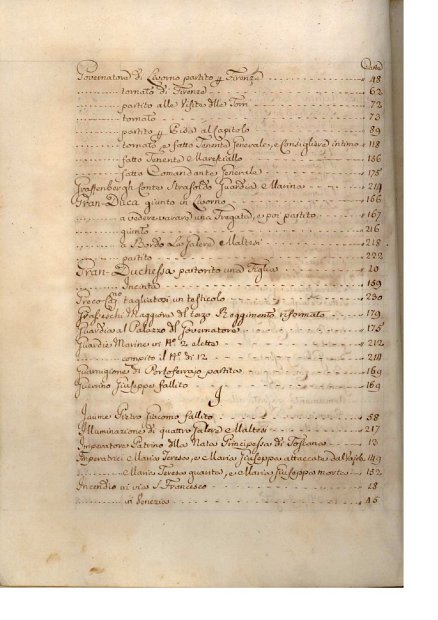 Carte
Governatore di Livorno partito p Firenze 48
tornato di Firenze 62
partito alla Visita delle Torri 72
tornato 73
partito p Pisa al Capitolo 89
tornato, e fatto Tenente Generale, e Consigliere intimo 118
fatto Tenente Maresciallo 156
fatto Comandante Generale 175
Graffenbergh Conte Strasoldo Guardia Marina 214
Gran-Duca giunto in Livorno 166
a vedere varare una Fregata, e poi partito 167
giunto 216
a Bordo La Galera Maltesi 218
partito 222
Gran-Duchessa partorito una Figlia 10
Incinta 159
Greco tagliatosi un testicolo 230
Maggiore del terzo Reggimento riformato 179
Guardia al Palazzo del Governatore 175
Guardie Marine in N.º 2 elette 212
compito il N.º di 12 214
Guarnigione di Portoferrajo partita 169
Guerrino Giuseppe fallito 169
J
Jaume Pietro Giacomo fallito 58
Illuminazione di quattro Galere Maltesi 217
Imperatore Patrino della Nata Principessa di Toscana 13
Imperatrici Maria Teresa, e Maria Giuseppa attaccate dal Vajolo 149
Maria Teresa guarita, e Maria Giuseppa morta 152
Incendio in via S. Francesco 18
in Venezia 45